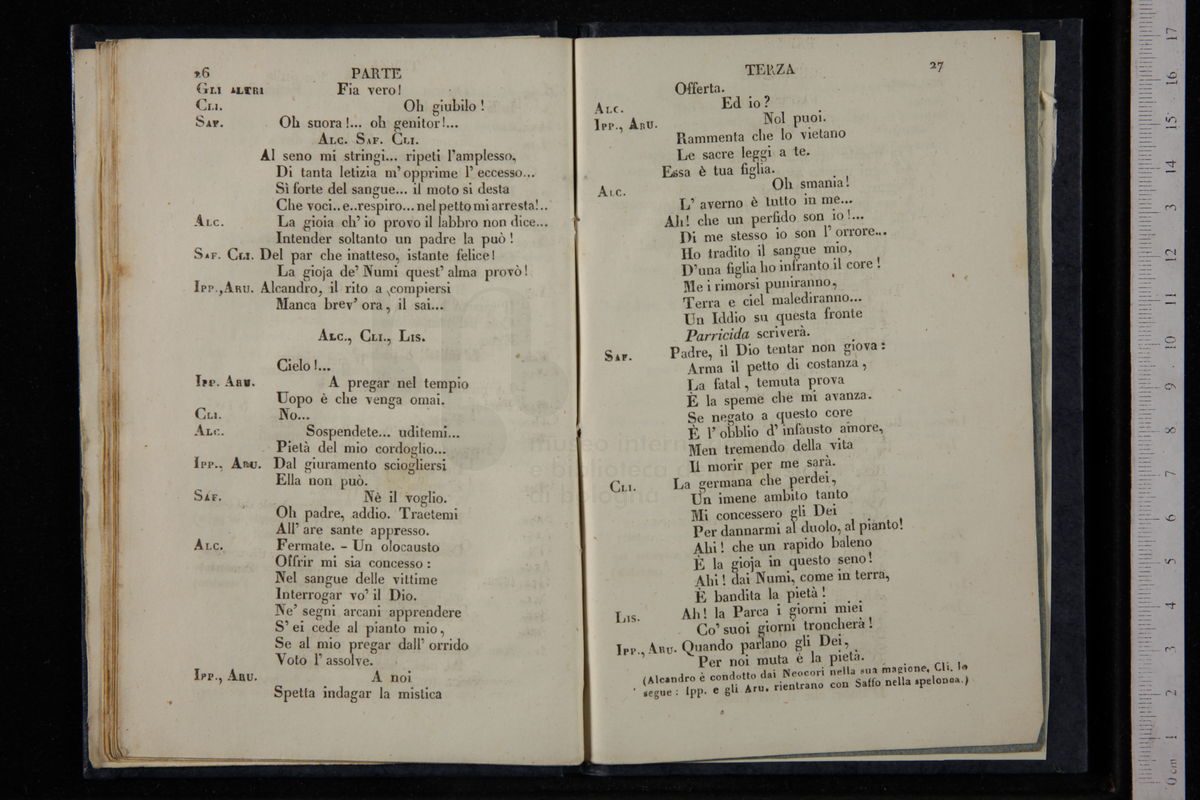 26 PARTE
GLI ALTRI Fia vero!
CLI. Oh giubilo!
SAF. Oh suora!... oh genitor!...
ALC. SAF. CLI.
Al seno mi stringi... ripeti l'amplesso,
Di tanta letizia m'opprime l'eccesso...
Sì forte del sangue... il moto si desta
Che voci.. e..respiro... nel petto mi arresta!..
ALC. La gioia ch'io provo il labbro non dice...
Intender soltanto un padre la può!
SAF. CLI. Del par che inatteso, istante felice!
La gioja de' Numi quest'alma provò!
IPP., ARU. Alcandro, il rito a compiersi
Manca brev'ora, il sai...
ALC., CLI., LIS.
Cielo!...
IPP. ARU. A pregar nel tempio
Uopo è che venga omai.
CLI. No...
ALC. Sospendete... uditemi...
Pietà del mio cordoglio...
IPP., ARU. Dal giuramento sciogliersi
Ella non può.
SAF. Nè il voglio.
Oh padre, addio. Traetemi
All'are sante appresso.
ALC. Fermate. – Un olocausto
Offrir mi sia concesso:
Nel sangue delle vittime
Interrogar vo' il Dio.
Ne' segni arcani apprendere
S'ei cede al pianto mio,
Se al mio pregar dall'orrido
Voto l'assolve.
IPP., ARU. A noi
Spetta indagar la mistica
TERZA 27
Offerta.
ALC. Ed io?
IPP., ARU. Nol puoi.
Rammenta che lo vietano
Le sacre leggi a te.
Essa è tua figlia.
ALC. Oh smania!
L'averno è tutto in me...
Ah! che un perfido son io!...
Di me stesso io son l'orrore...
Ho tradito il sangue mio,
D'una figlia ho infranto il core!
Me i rimorsi puniranno,
Terra e ciel malediranno...
Un Iddio su questa fronte
Parricida scriverà.
SAF. Padre, il Dio tentar non giova:
Arma il petto di costanza,
La fatal, temuta prova
È la speme che mi avanza.
Se negato a questo core
È l'obblio d'infausto amore,
Men tremendo della vita
Il morir per me sarà.
CLI. La germana che perdei,
Un imene ambito tanto
Mi concessero gli Dei
Per dannarmi al duolo, al pianto!
Ahi! che un rapido baleno
È la gioja in questo seno!
Ahi! dai Numi, come in terra,
È bandita la pietà!
LIS. Ah! la Parca i giorni miei
Co' suoi giorni troncherà!
IPP., ARU. Quando parlano gli Dei,
Per noi muta è la pietà.
(Alcandro è condotto dai Neocori nella sua magione, Cli. lo
segue: Ipp. e gli Aru. rientrano con Saffo nella spelonca.)
museo internazionale
e biblioteca
di bologna
0 cm 1 2 3 4 5 6 7 8 9 10 11 12 13 14 15 16 17